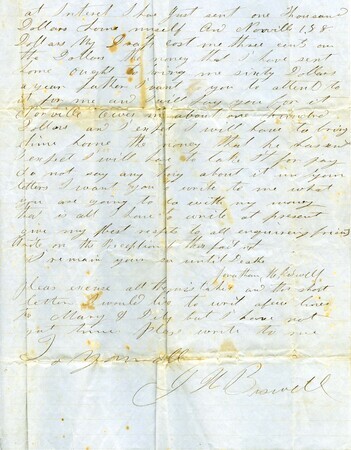 at Interest I have Just sent one thousand
Dollars from myself And Norvill 158
Dollars My Draft cost me three cents on
the Dollar the money that I have sent
home ought to bring me sixty Dollars
a year father I want you to attend to
it for me and I will pay you for it
Norville owes me about one hundred
Dollars and I expect I will have to bring
him home the money that he has sent
I expect I will have to take it for pay
do not say any thing about it in your
letters I want you to write to me what
you are going to do with my money
that is all I have to write at present
give my best respts to all enquireing friends
write on the Reception to this fail not
I remain your son until Death
Jonathan H Biswell
pleas excuse all mistakes and this short
letter I would like to write a few lines
to Mary I but I have not
got time pleas write to me
J H Biswell